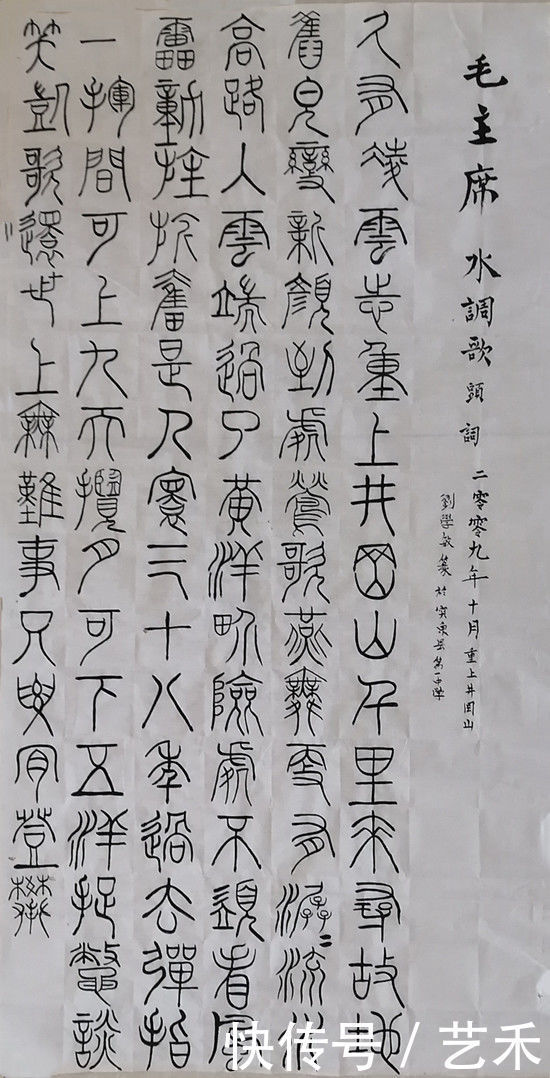 毛主席 水調歌頭詞 二零零九年十月重上井岡山
劉學敏篆
久有凌雲志重上井岡山千里來尋故地
舊皃變新顏到處鶯歌燕舞更有潺二流水
高路入雲端過了黃洋畍險處不須看風
雷動旌旗奮是人寰三十八年過去彈指
一揮間可上九天攬月可下五洋捉鱉談
笑凱歌還世上無難事只要肯登攀
快传号 / 艺禾